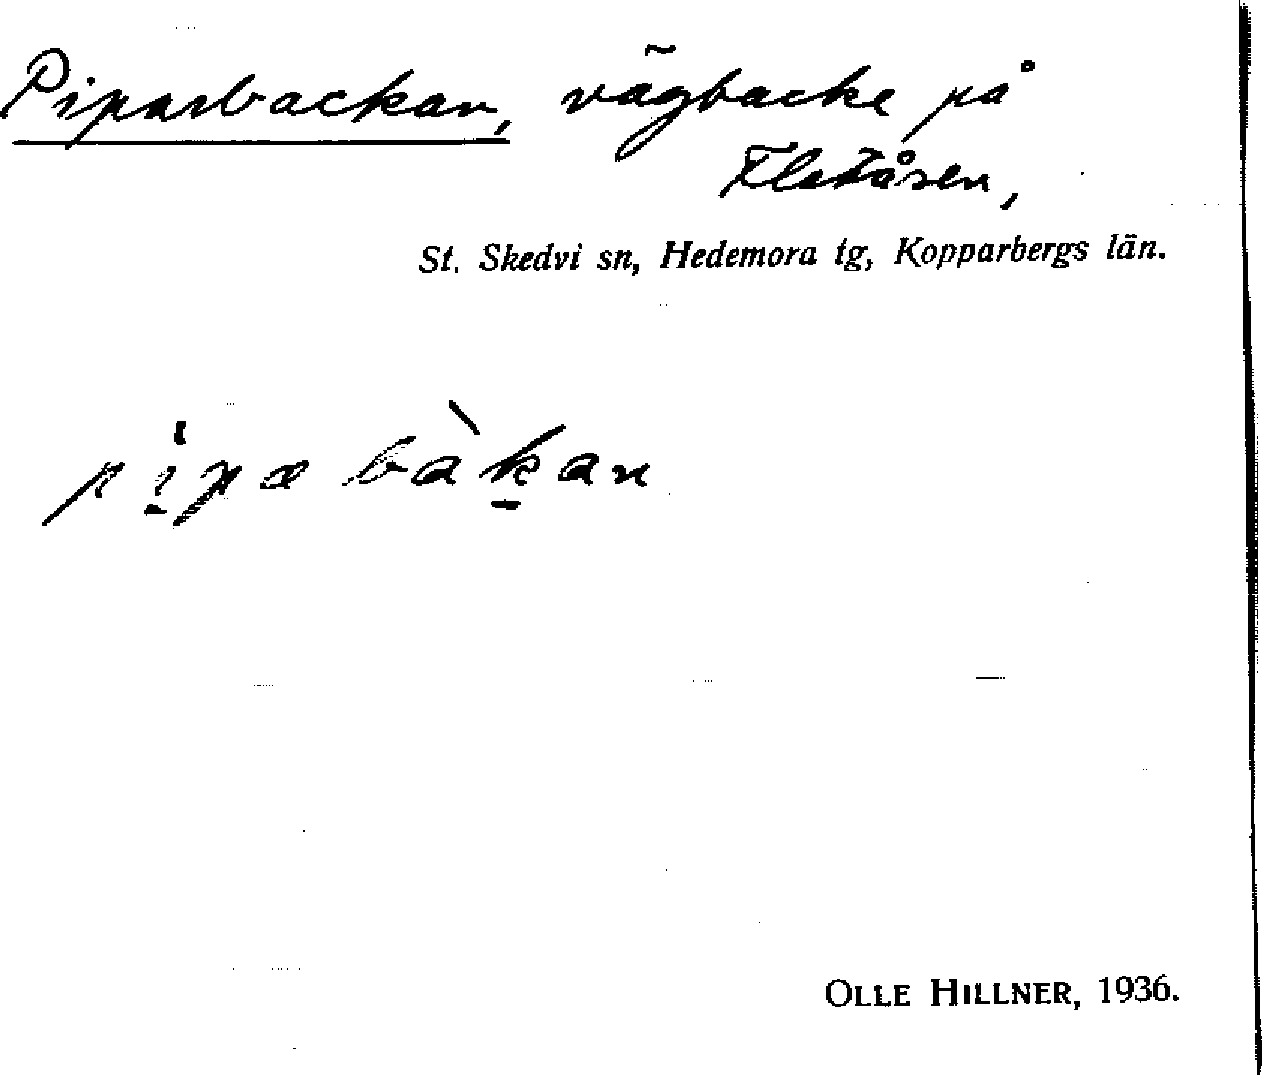 Piparbackan, vägbacke på
Fletåsen,
St. Skedvi sn, Hedemora tg, Kopparbergs län.
OLLE HILLNER, 1936.